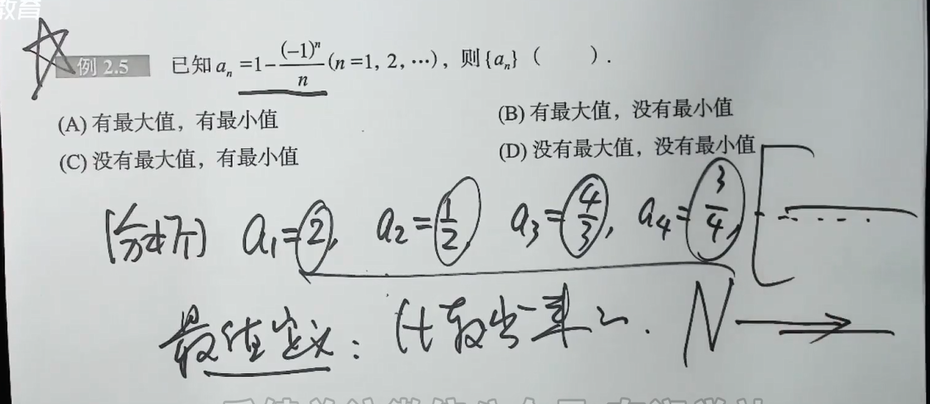 教育
例 2.5 已知 aₙ=1-(-1)ⁿ/n (n=1, 2, …), 则{aₙ} ( ).
(A) 有最大值，有最小值 (B) 有最大值，没有最小值
(C) 没有最大值，有最小值 (D) 没有最大值，没有最小值
[分析] a₁=2, a₂=1/2, a₃=4/3, a₄=3/4,
最值定义: N